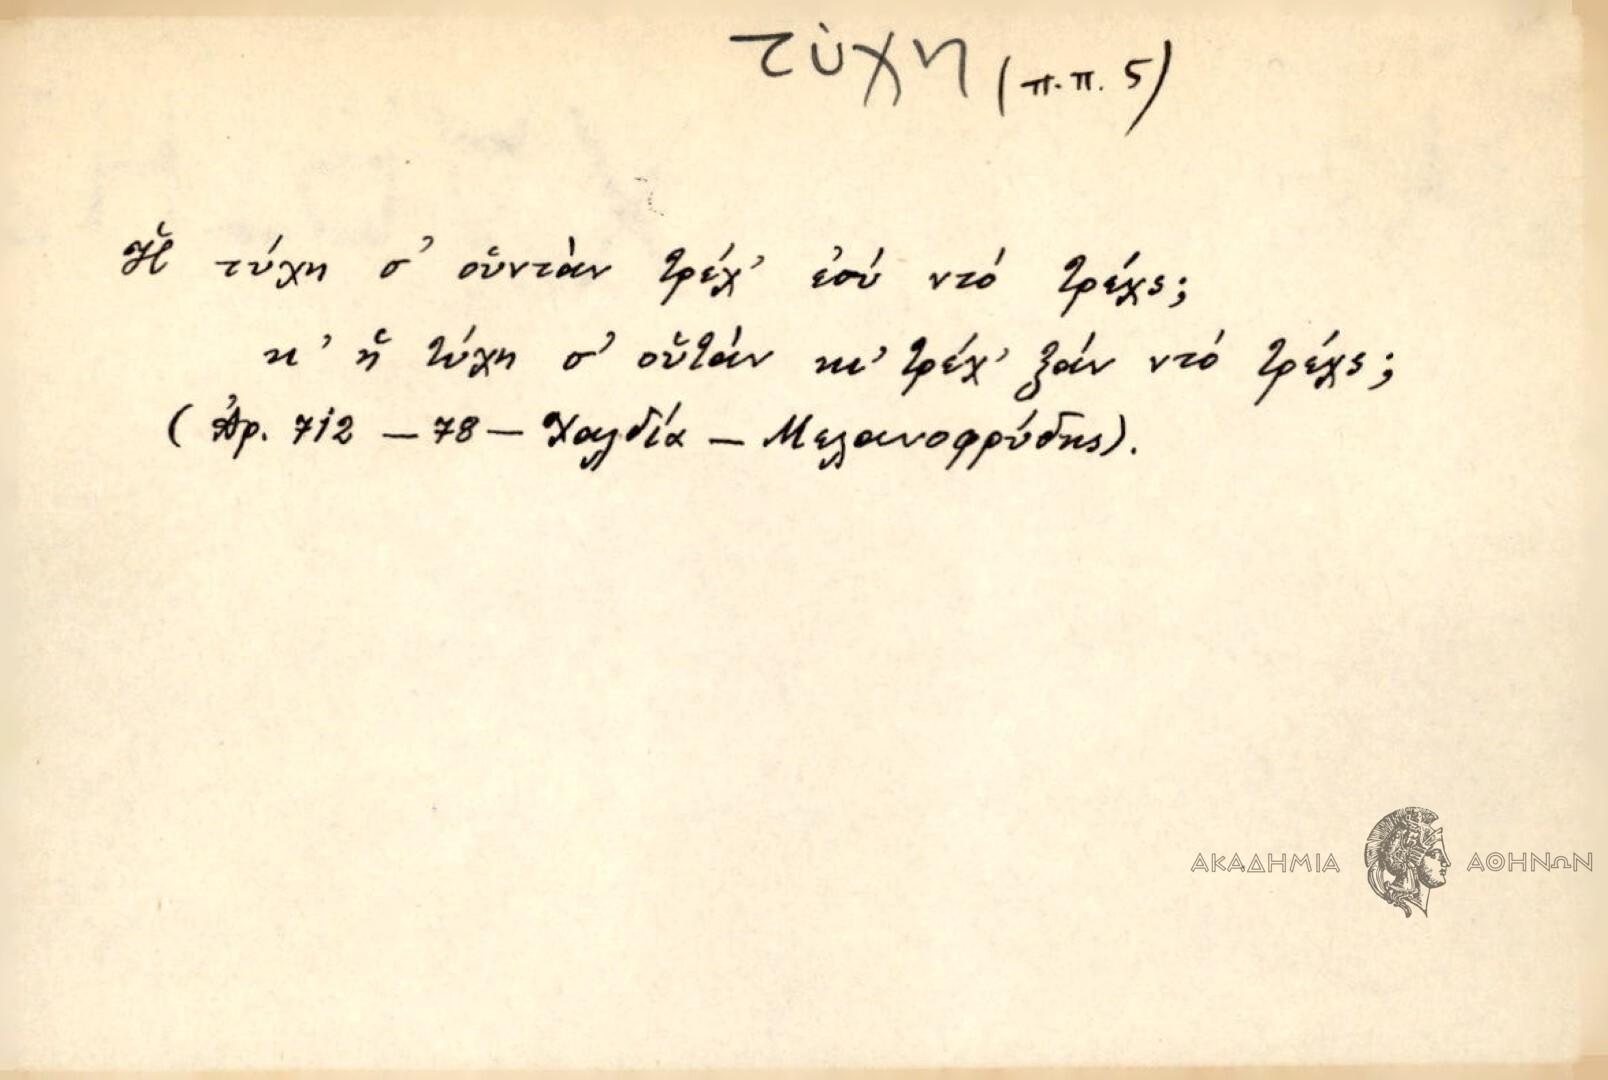 τύχη (π.π. 5)
Ἡ τύχη σ' οὔνταν τρέχ' ἐσύ ντό τρέχς;
κ' ἡ τύχη σ' οὔταν κι' τρέχ' ξάν ντό τρέχς;
(Ἀρ. 712 – 78 – Χαλδία – Μελανοφρύδης).
ΑΚΑΔΗΜΙΑ ΑΘΗΝΩΝ